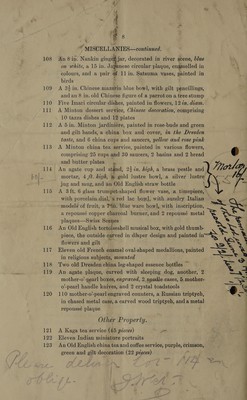 8
MISCELLANIES—continued.
108 An 8 in. Nankin ginger jar, decorated in river scene, blue
on white, a 15 in. Japanese circular plaque, enamelled in
colours, and a pair of 11 in. Satsuma vases, painted in
birds
109 A 9½ in. Chinese mazarin blue bowl, with gilt pencillings,
and an 8 in. old Chinese figure of a parrot on a tree stump
110 Five Imari circular dishes, painted in flowers, 12 in. diam.
111 A Minton dessert service, Chinese decoration, comprising
10 tazza dishes and 12 plates
112 A 5 in. Minton jardinière, painted in rose buds and green
and gilt bands, a china box and cover, in the Dresden
taste, and 6 china cups and saucers, yellow and rose pink
113 A Minton china tea service, painted in various flowers,
comprising 25 cups and 39 saucers, 2 basins and 2 bread
and butter plates
114 An agate cup and stand, 2¾ in. high, a brass pestle and
mortar, 4 ft. high, a gold lustre bowl, a silver lustre
jug and mug, and an Old English stone bottle
115 A 3 ft. 6 glass trumpet-shaped flower vase, a timepiece,
with porcelain dial, a red lac bowl, with sundry Italian
models of fruit, a 7½in. blue ware bowl, with inscription,
a repoussé copper charcoal burner, and 2 repoussé metal
plaques—Swiss Scenes
116 An Old English tortoiseshell musical box, with gold thumb-
piece, the outside carved in diaper design and painted in
flowers and gilt
117 Eleven old French enamel oval-shaped medallions, painted
in religious subjects, mounted
118 Two old Dresden china leg-shaped nussuse bottles
119 An agate plaque, carved with sleeping dog, another, 2
mother-o'-pearl boxes, engraved, 2 spectacle cases, 5 mother-
o'-pearl handle knives, and 2 crystal toadstools
120 110 mother-o'-pearl engraved counters, a Russian triptych,
in chased metal case, a carved wood triptych, and a metal
repoussé plaque
Other Property.
121 A Kaga tea service (45 pieces)
122 Eleven Indian miniature portraits
123 An Old English china tea and coffee service, purple, crimson,
green and gilt decoration (22 pieces)
Please